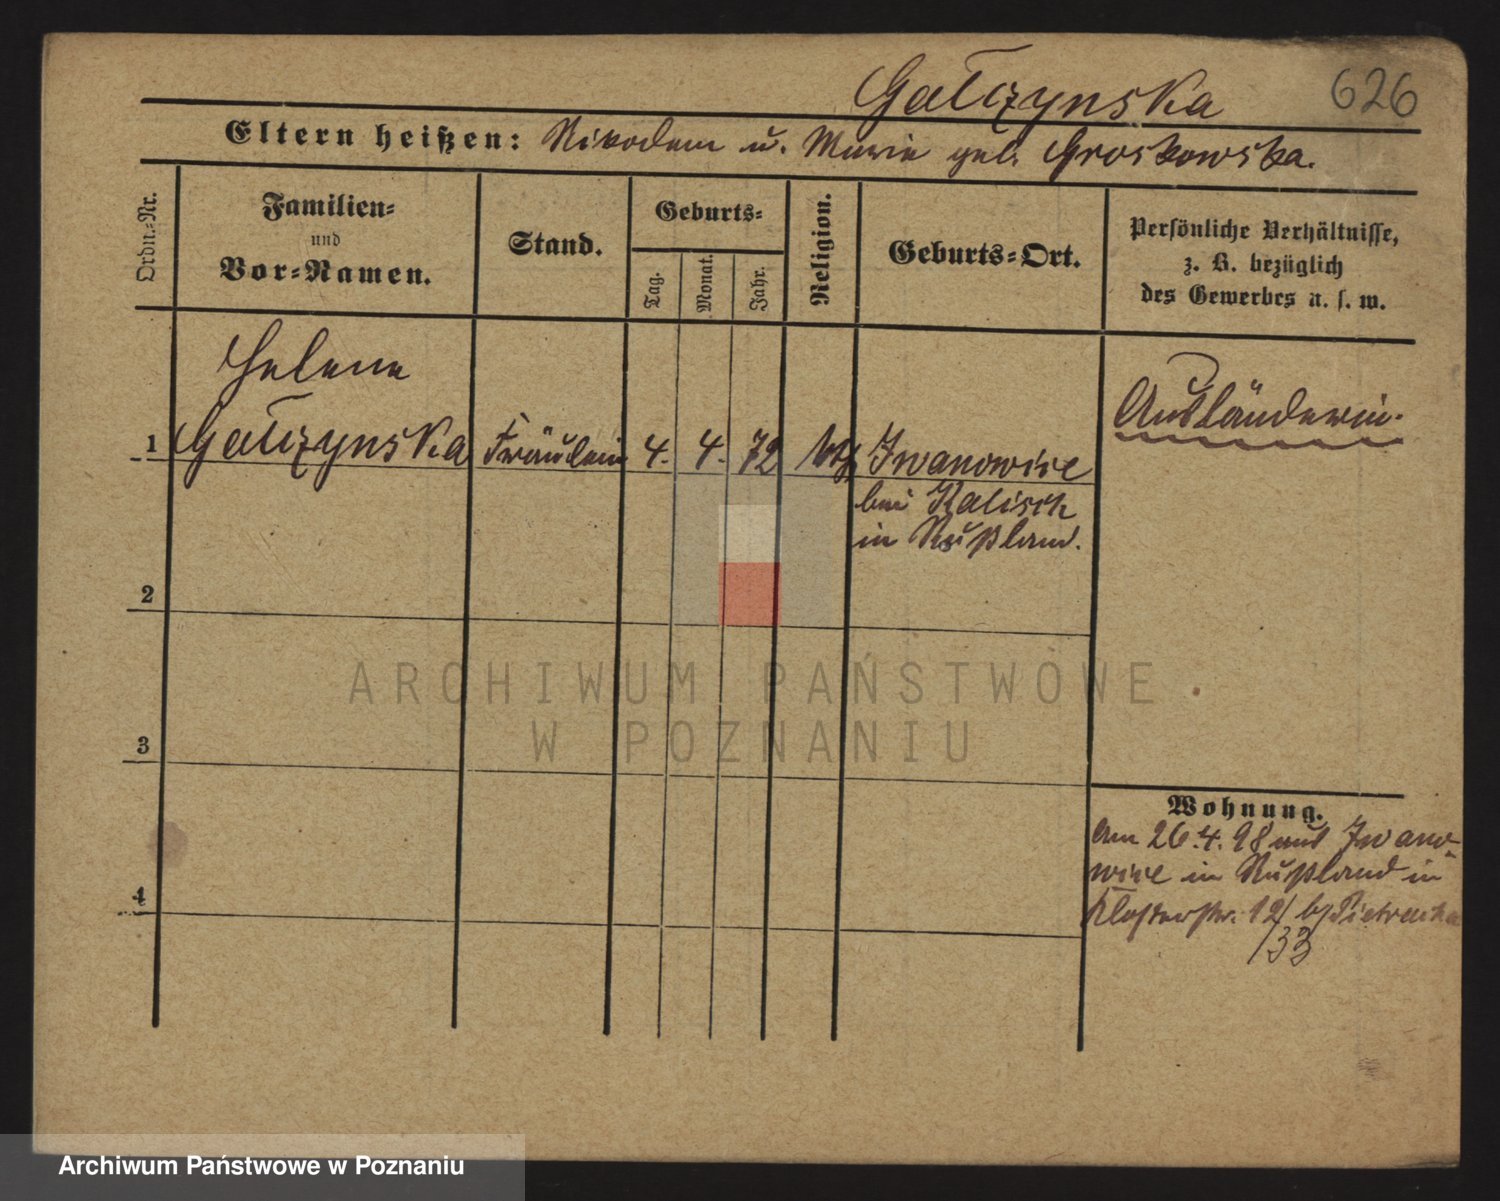 Gałczynska
626
Eltern heißen: Nikodem u. Marie geb. Groskowska.
Ordn.-Nr.
Familien-
und
Vor-Namen.
Stand.
Geburts-
Tag.
Monat.
Jahr.
Religion.
Geburts-Ort.
Persönliche Verhältnisse,
z. B. bezüglich
des Gewerbes u. s. w.
Helene
1 Gałczynska Fräulein 4. 4. 72 Iwanowice
bei Kalisch
in Rußland.
Ausländerin.
2
3
4
Wohnung.
Am 26.4.98 aus Iwano-
wice in Rußland in
Klosterstr. 12/ b/
/33
ARCHIWUM PAŃSTWOWE
W POZNANIU
Archiwum Państwowe w Poznaniu